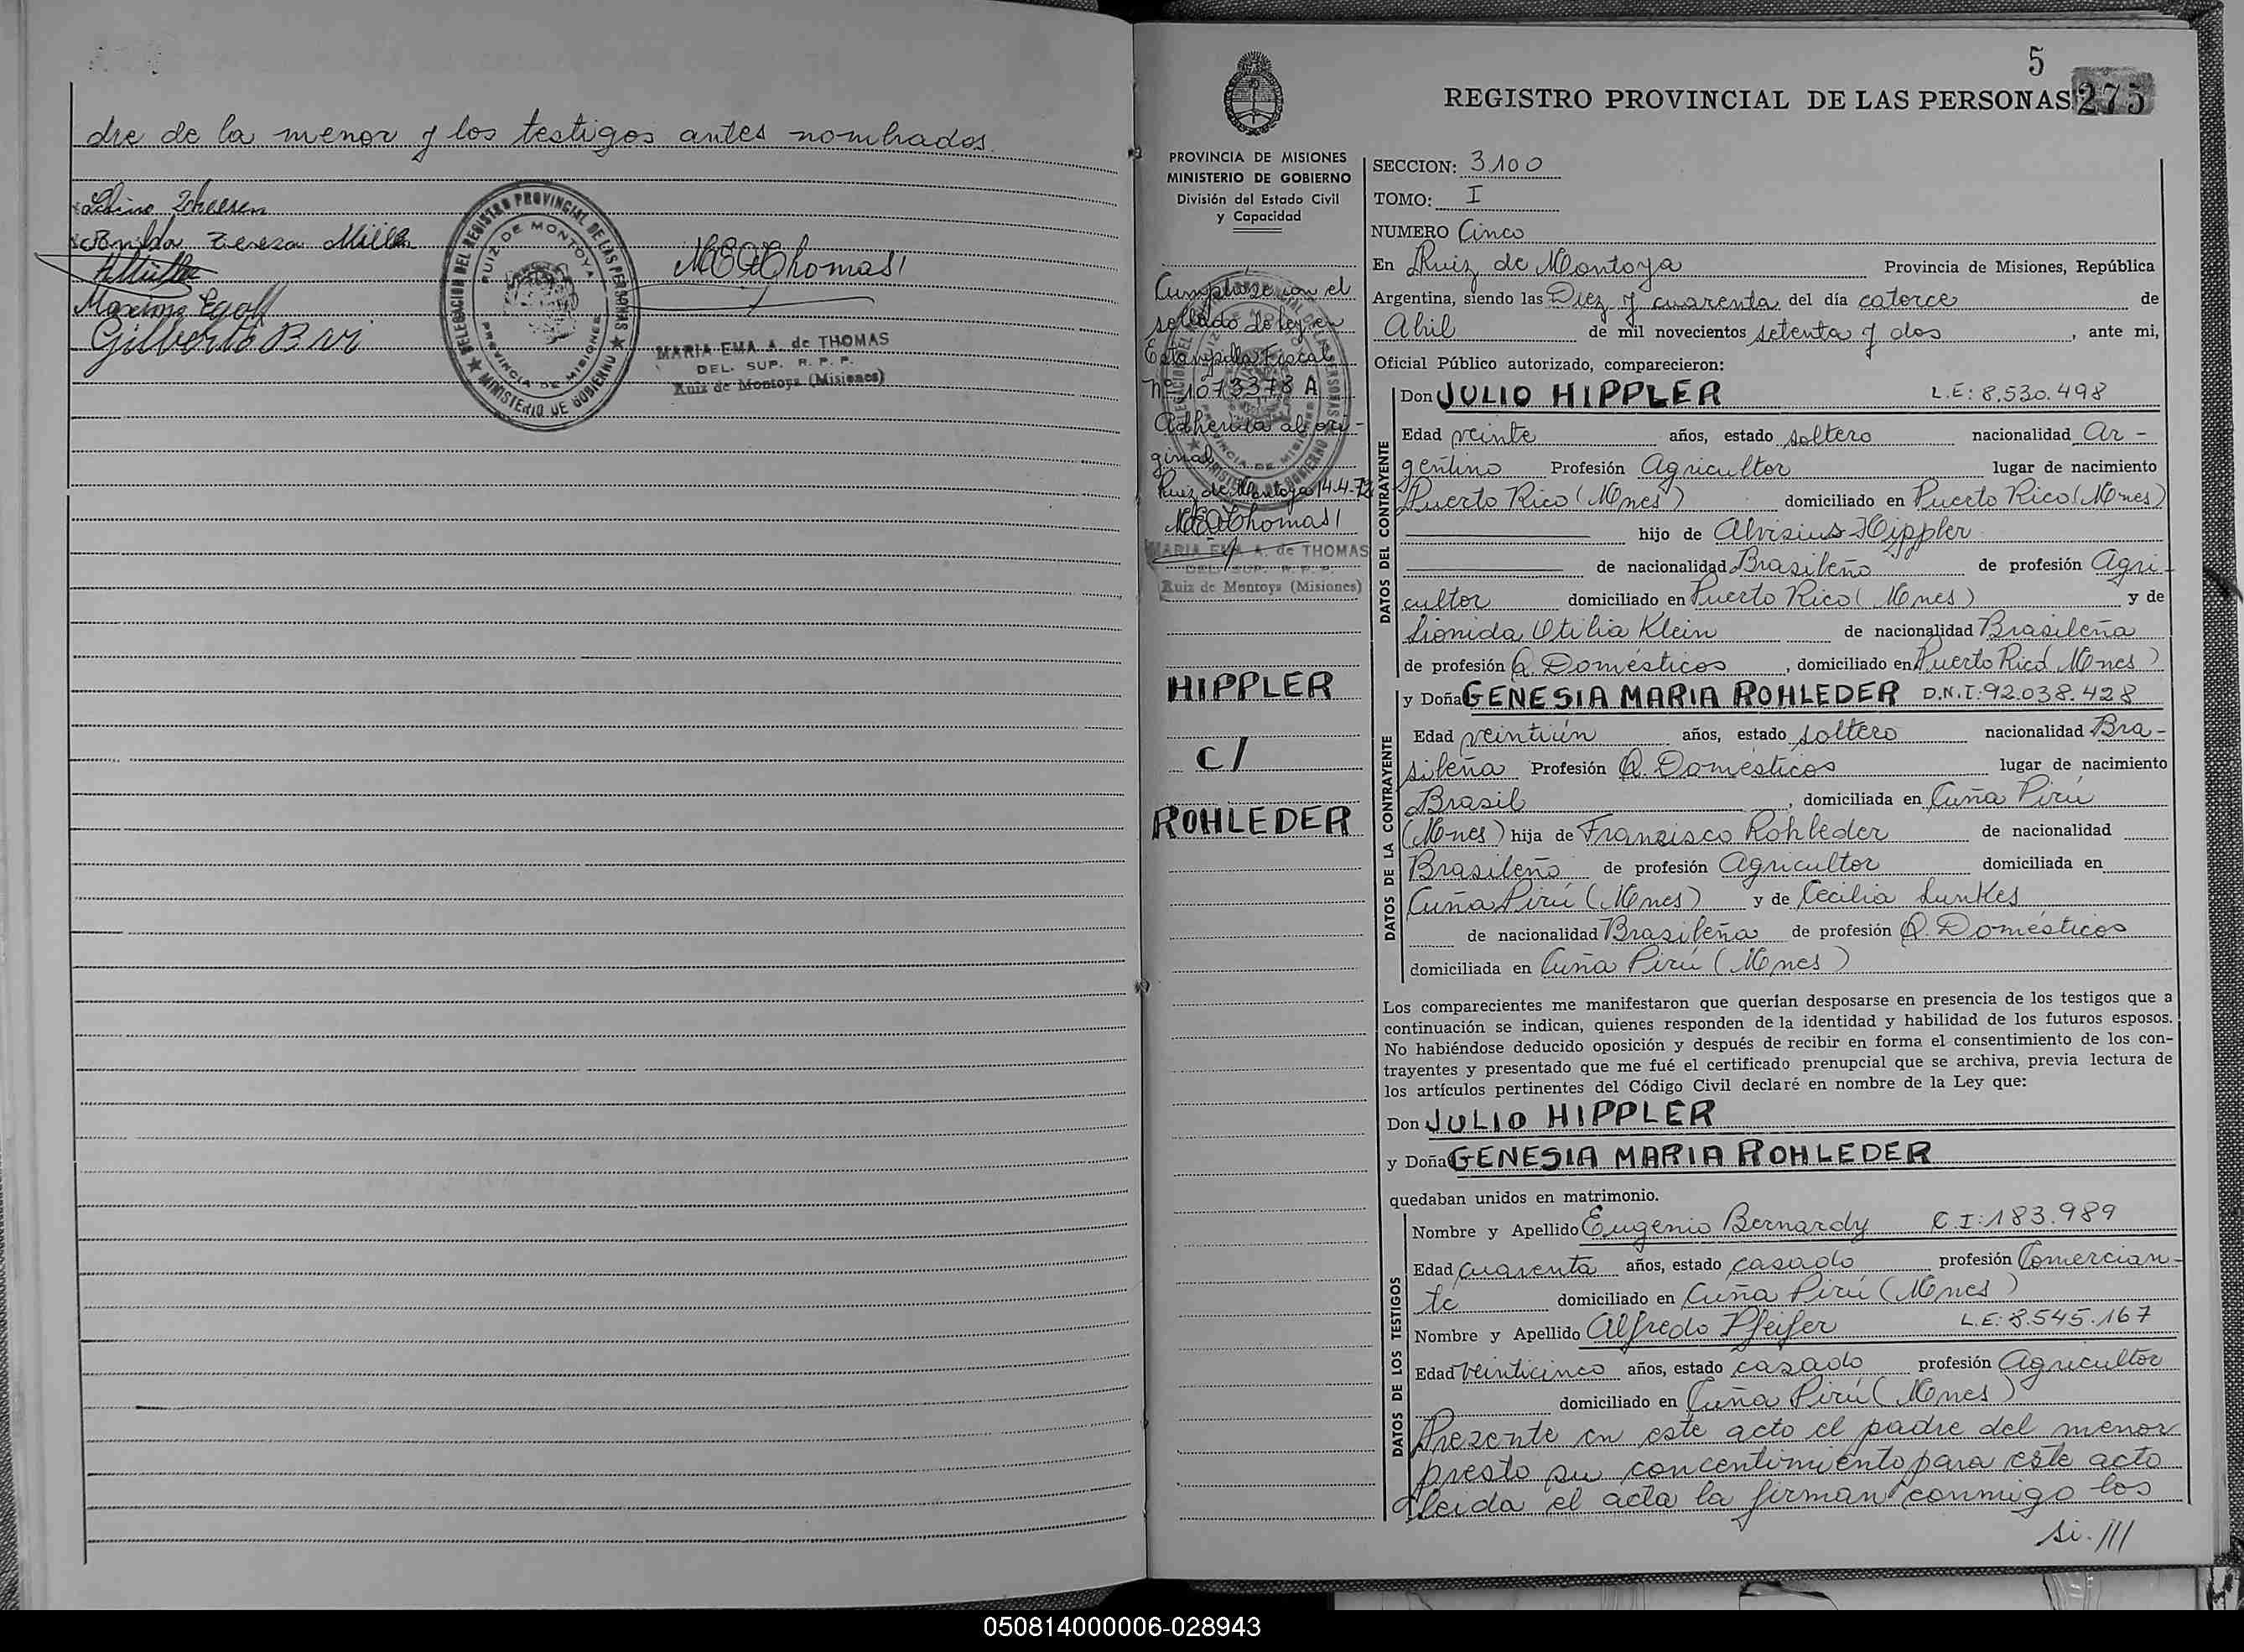 dre de la menor y los testigos antes nombrados.
Teresa
Gilberto
DELEGACION DEL REGISTRO PROVINCIAL DE LAS PERSONAS
MINISTERIO DE GOBIERNO
RUIZ DE MONTOYA
PROVINCIA DE MISIONES
MEAThomas
MARIA EMA A. de THOMAS
DEL. SUP. R. P. P.
Ruiz de Montoya (Misiones)
5
REGISTRO PROVINCIAL DE LAS PERSONAS 275
PROVINCIA DE MISIONES
MINISTERIO DE GOBIERNO
División del Estado Civil
y Capacidad
Cumplose con el
sellado de ley en
Estampilla Fiscal
Nº 1073378 A
Adherida al ori-
ginal
Ruiz de Montoya 14-4-72
MEAThomas
MARIA EMA A. de THOMAS
DEL. SUP. R. P. P.
Ruiz de Montoya (Misiones)
HIPPLER
C/
ROHLEDER
SECCION: 3100
TOMO: I
NUMERO Cinco
En Ruiz de Montoya Provincia de Misiones, República
Argentina, siendo las Diez y cuarenta del día catorce de
Abril de mil novecientos setenta y dos, ante mi,
Oficial Público autorizado, comparecieron:
DATOS DEL CONTRAYENTE
Don JULIO HIPPLER L.E: 8.530.498
Edad veinte años, estado soltero nacionalidad Ar-
gentino Profesión Agricultor lugar de nacimiento
Puerto Rico (Mnes) domiciliado en Puerto Rico (Mnes)
hijo de Alvisius Hippler
de nacionalidad Brasileño de profesión Agri-
cultor domiciliado en Puerto Rico (Mnes) y de
Sionida Otilia Klein de nacionalidad Brasileña
de profesión Q. Domésticos, domiciliado en Puerto Rico (Mnes)
DATOS DE LA CONTRAYENTE
y Doña GENESIA MARIA ROHLEDER D.N.I: 92.038.428
Edad veintiún años, estado soltero nacionalidad Bra-
sileña Profesión Q. Domésticos lugar de nacimiento
Brasil, domiciliada en Cuña Pirú
(Mnes) hija de Francisco Rohleder de nacionalidad
Brasileño de profesión Agricultor domiciliada en
Cuña Pirú (Mnes) y de Cecilia Lunkes
de nacionalidad Brasileña de profesión Q. Domésticos
domiciliada en Cuña Pirú (Mnes)
Los comparecientes me manifestaron que querían desposarse en presencia de los testigos que a
continuación se indican, quienes responden de la identidad y habilidad de los futuros esposos.
No habiéndose deducido oposición y después de recibir en forma el consentimiento de los con-
trayentes y presentado que me fué el certificado prenupcial que se archiva, previa lectura de
los artículos pertinentes del Código Civil declaré en nombre de la Ley que:
Don JULIO HIPPLER
y Doña GENESIA MARIA ROHLEDER
quedaban unidos en matrimonio.
DATOS DE LOS TESTIGOS
Nombre y Apellido Eugenio Bernardy C.I: 183.989
Edad cuarenta años, estado casado profesión Comercian-
te domiciliado en Cuña Pirú (Mnes)
Nombre y Apellido Alfredo Pfeifer L.E: 8.545.167
Edad veinticinco años, estado casado profesión Agricultor
domiciliado en Cuña Pirú (Mnes)
Presente en este acto el padre del menor
presto su concentimiento para este acto
leida el acta la firman conmigo los
si. ///
050814000006-028943